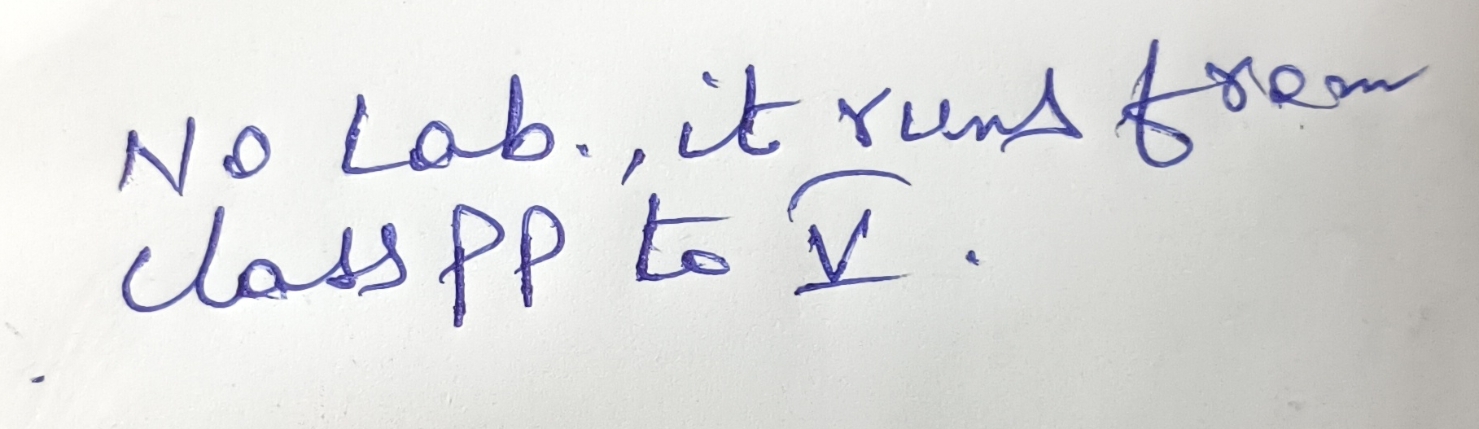 No Lab., it runs from
class PP to V.